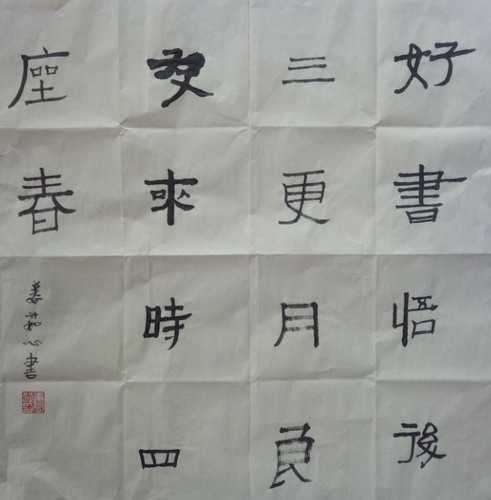 好書悟後
三更月良
友來時四
座春
姜茹心書